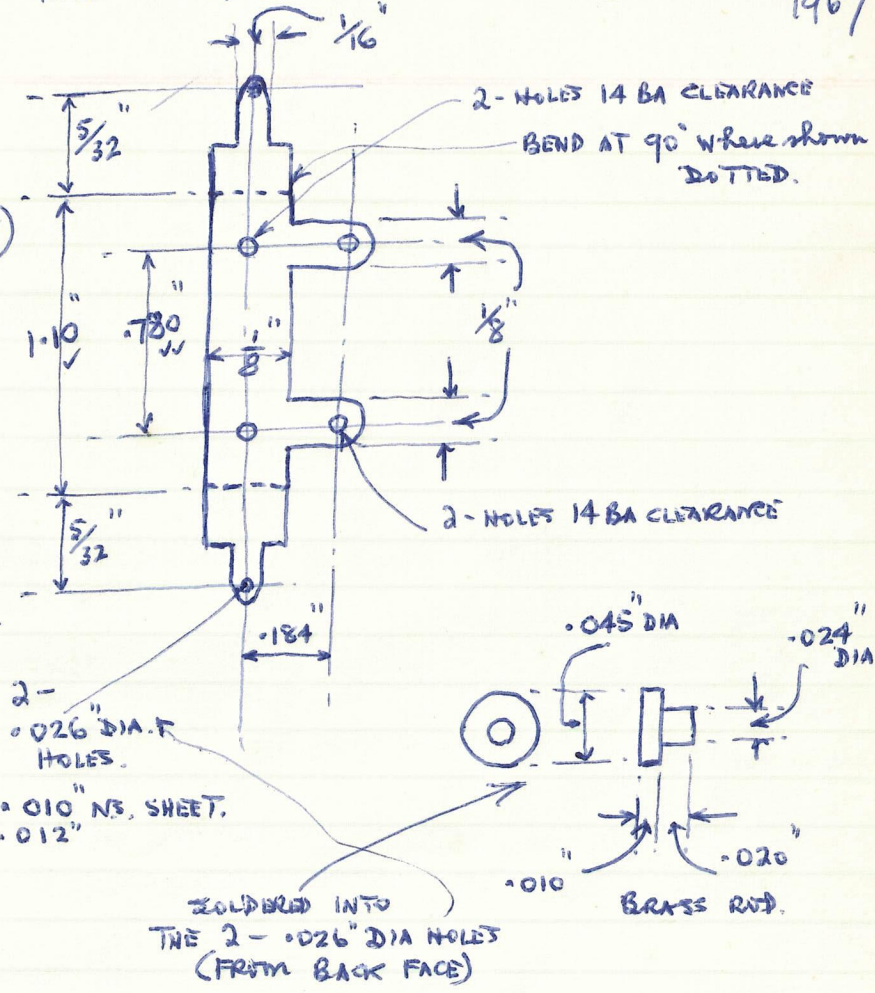 196/
1/16"
2-HOLES 14 BA CLEARANCE
BEND AT 90° where shown
DOTTED.
5/32"
1.10"
.780"
1/8"
1/8"
5/32"
2-HOLES 14 BA CLEARANCE
.184"
.045" DIA
.024"
DIA
2-
.026" DIA.
HOLES.
.010" NS. SHEET.
.012"
.010"
.020"
BRASS ROD.
SOLDERED INTO
THE 2- .026" DIA HOLES
(FROM BACK FACE)